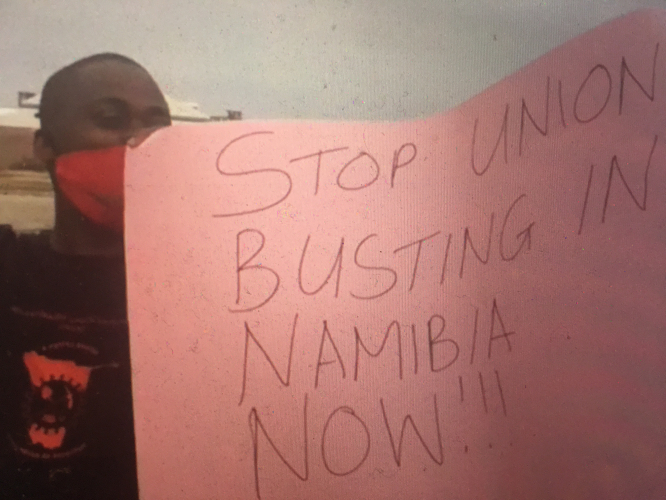 STOP UNION
BUSTING IN
NAMIBIA
NOW!!!